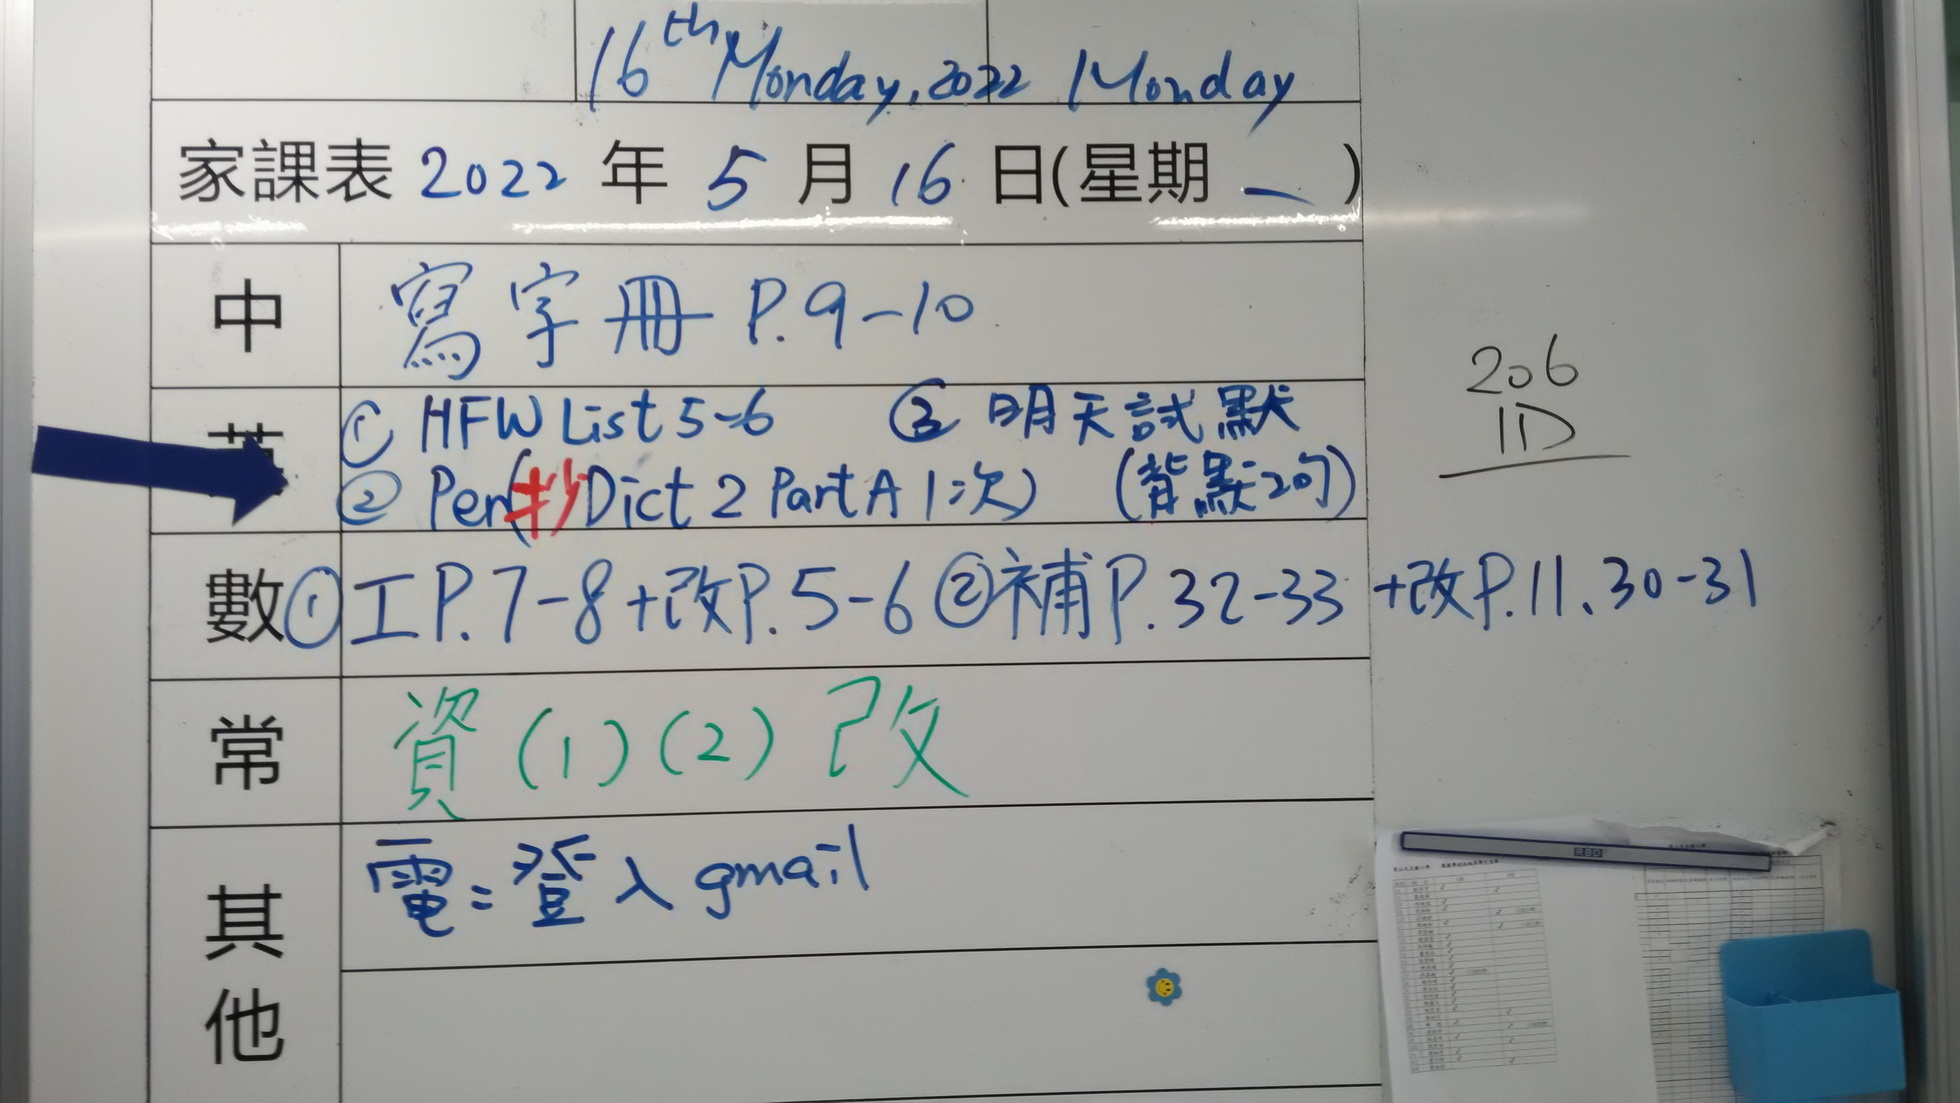 16th Monday, 2022 Monday
家課表 2022 年 5 月 16 日(星期 一 )
中 寫字冊 P.9-10
英 ① HFW List 5-6 ③ 明天試默
② Pen(抄Dict 2 Part A 1次) (背默2句)
數 ① 工P.7-8+改P.5-6 ②補P.32-33 +改P.11、30-31
常 資(1)(2)改
其他 電:登入gmail
206
1D
RBD